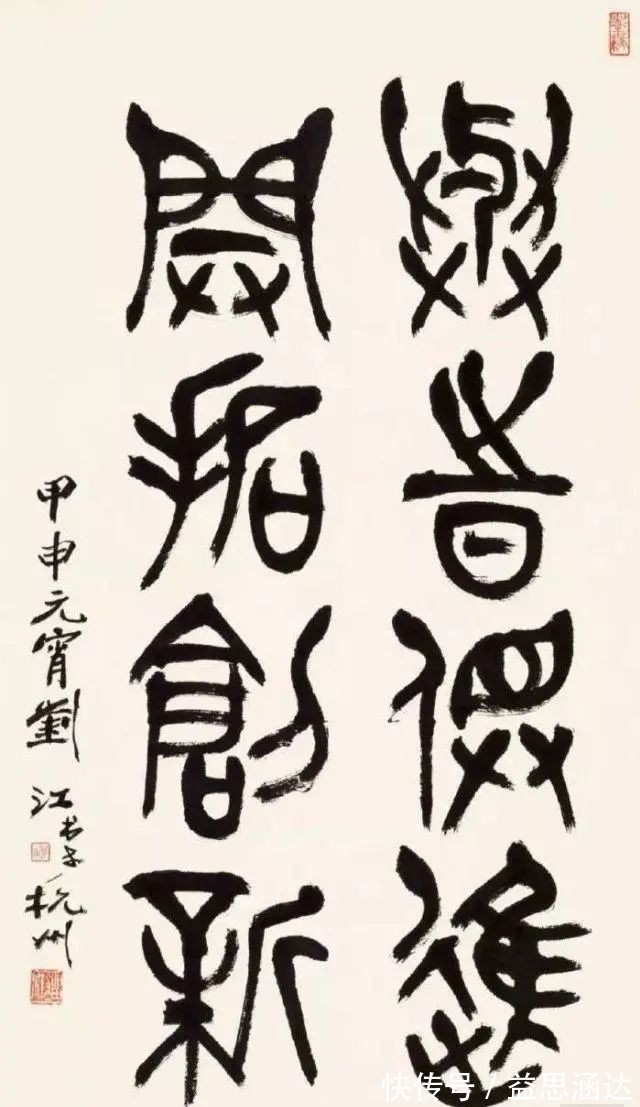 與時俱進
開拓創新
甲申元宵劉江书于杭州
快传号 / 益思涵达